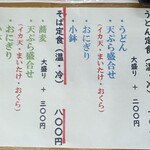 うどん定食(温・冷)
・うどん
・天ぷら盛合せ
(イカ天・まいたけ・おくら)
・おにぎり
・小鉢
大盛り+二〇〇円
そば定食(温・冷)
八〇〇円
・蕎麦
・天ぷら盛合せ
(イカ天・まいたけ・おくら)
・おにぎり
大盛り+三〇〇円